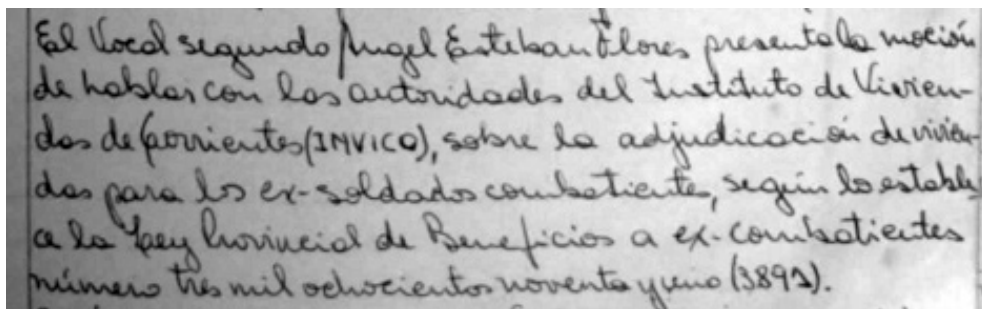 El Vocal segundo Angel Esteban Flores presenta la moción
de hablar con las autoridades del Instituto de Vivien-
das de Corrientes (INVICO), sobre la adjudicación de vivien-
das para los ex-soldados combatiente, según lo estable
ce la Ley Provincial de Beneficios a ex-combatientes
número tres mil ochocientos noventa y uno (3891).